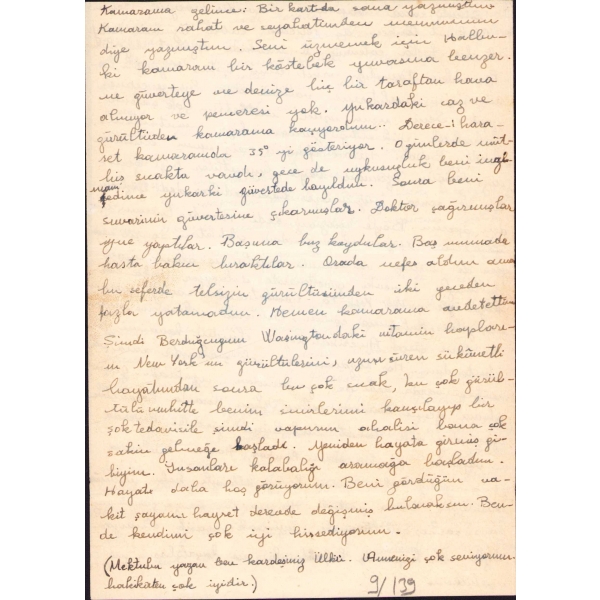 Kamarama gelince: Bir kartda sana yazmıştım
Kamaram rahat ve seyahatimden memnunum
diye yazmıştım. Seni üzmemek için Halbu-
ki kamaram bir köstebek yuvasına benzer.
ne güverteye ne denize hiç bir taraftan hava
almıyor ve penceresi yok. yukardaki caz ve
gürültüden kamarama kaçıyordum.. Derece-i hara-
ret kamaramda 35° yi gösteriyor. O günlerde müt-
hiş sıcakta vardı, gece de uykusuzluk beni
edince yukarki güvertede bayıldım. Sonra beni
süvarinin güvertesine çıkarmışlar. Doktor çağırmışlar
iğne yaptılar. Başıma buz koydular. Baş ucumada
hasta bakıcı bıraktılar. Orada nefes aldım ama
bu seferde telsizin gürültüsünden iki geceden
fazla yatamadım. Hemen kamarama avdet ettim
Şimdi Washingtondaki vitamin hapları-
ın New York'un gürültülerini, uzun süren sükûnetli
hayatımdan sonra bu çok sıcak, bu çok gürül-
tülü muhitte benim sinirlerimi kamçılayıp bir
şok tedavisile şimdi vapurun ahalisi bana çok
sakin gelmeğe başladı. Yeniden hayata girmiş gi-
biyim. İnsanları kalabalığı aramağa başladım.
Hayatı daha hoş görüyorum. Beni gördüğün va-
kit şayanı hayret derecede değişmiş bulacaksın. Ben-
de kendimi çok iyi hissediyorum.
(Mektubu yazan ben kardeşiniz Ülkü. Annenizi çok seviyorum.
hakikaten çok iyidir.)
9/139